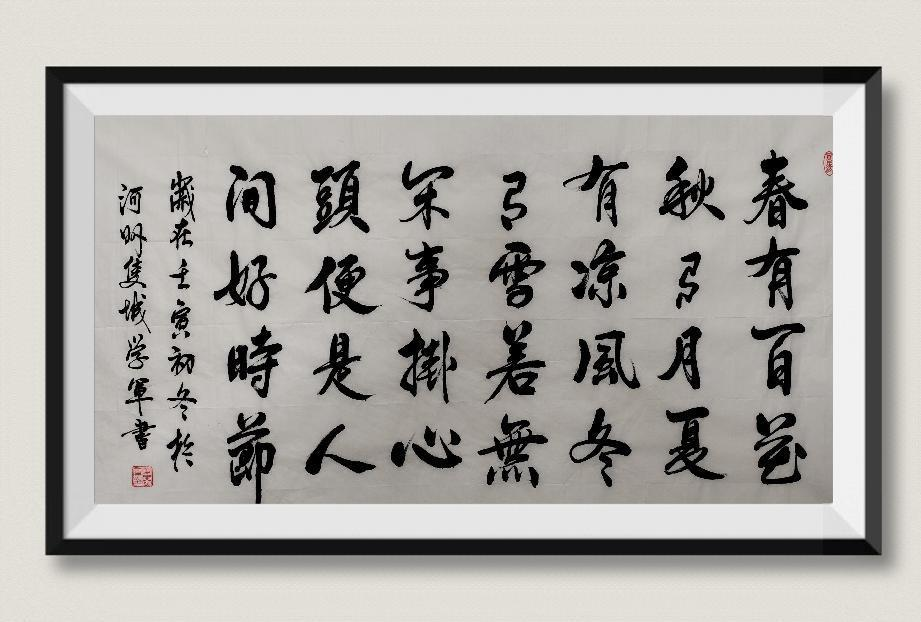 春有百花
秋有月夏
有凉風冬
有雪若無
闲事掛心
頭便是人
间好時節
歲在壬寅初冬於
河州隻城学軍書